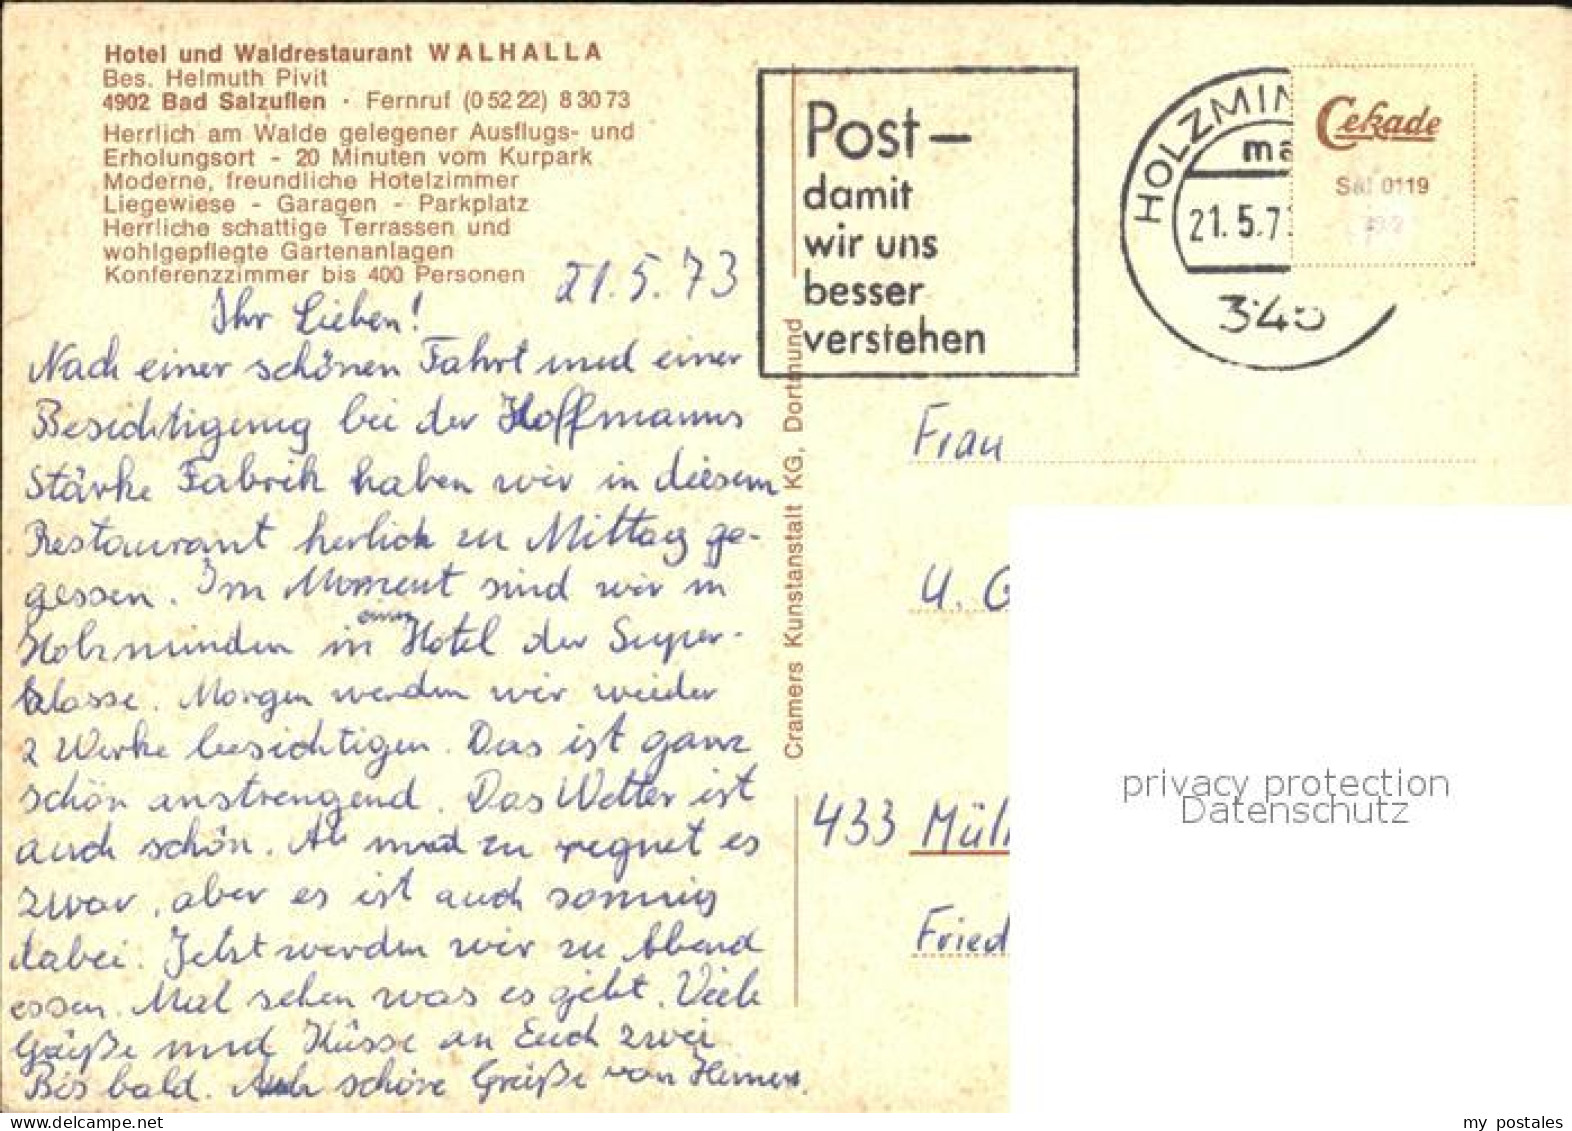 Hotel und Waldrestaurant WALHALLA
Bes. Helmuth Pivit
4902 Bad Salzuflen · Fernruf (0 52 22) 8 30 73
Herrlich am Walde gelegener Ausflugs- und
Erholungsort - 20 Minuten vom Kurpark
Moderne, freundliche Hotelzimmer
Liegewiese - Garagen - Parkplatz
Herrliche schattige Terrassen und
wohlgepflegte Gartenanlagen
Konferenzzimmer bis 400 Personen
21.5.73
Ihr Lieben!
Nach einer schönen Fahrt und einer
Besichtigung bei der Hoffmanns
Stärke Fabrik haben wir in diesem
Restaurant herlich zu Mittag ge-
gessen. Im Moment sind wir in
Holzminden in einem Hotel der Super-
klasse. Morgen werden wir wieder
2 Werke besichtigen. Das ist ganz
schön anstrengend. Das Wetter ist
auch schön. Ab und zu regnet es
zwar, aber es ist auch sonnig
dabei. Jetzt werden wir zu Abend
essen. Mal sehen was es giebt. Viele
Grüße und Küsse an Euch zwei
Bis bald. Auch schöne Grüße von
Cramers Kunstanstalt KG, Dortmund
Post—
damit
wir uns
besser
verstehen
HOLZMIN
ma
21.5.7
345
Cekade
Sal 0119
Frau
U. G
433 Mül
Fried
privacy protection
Datenschutz
my postales
www.delcampe.net